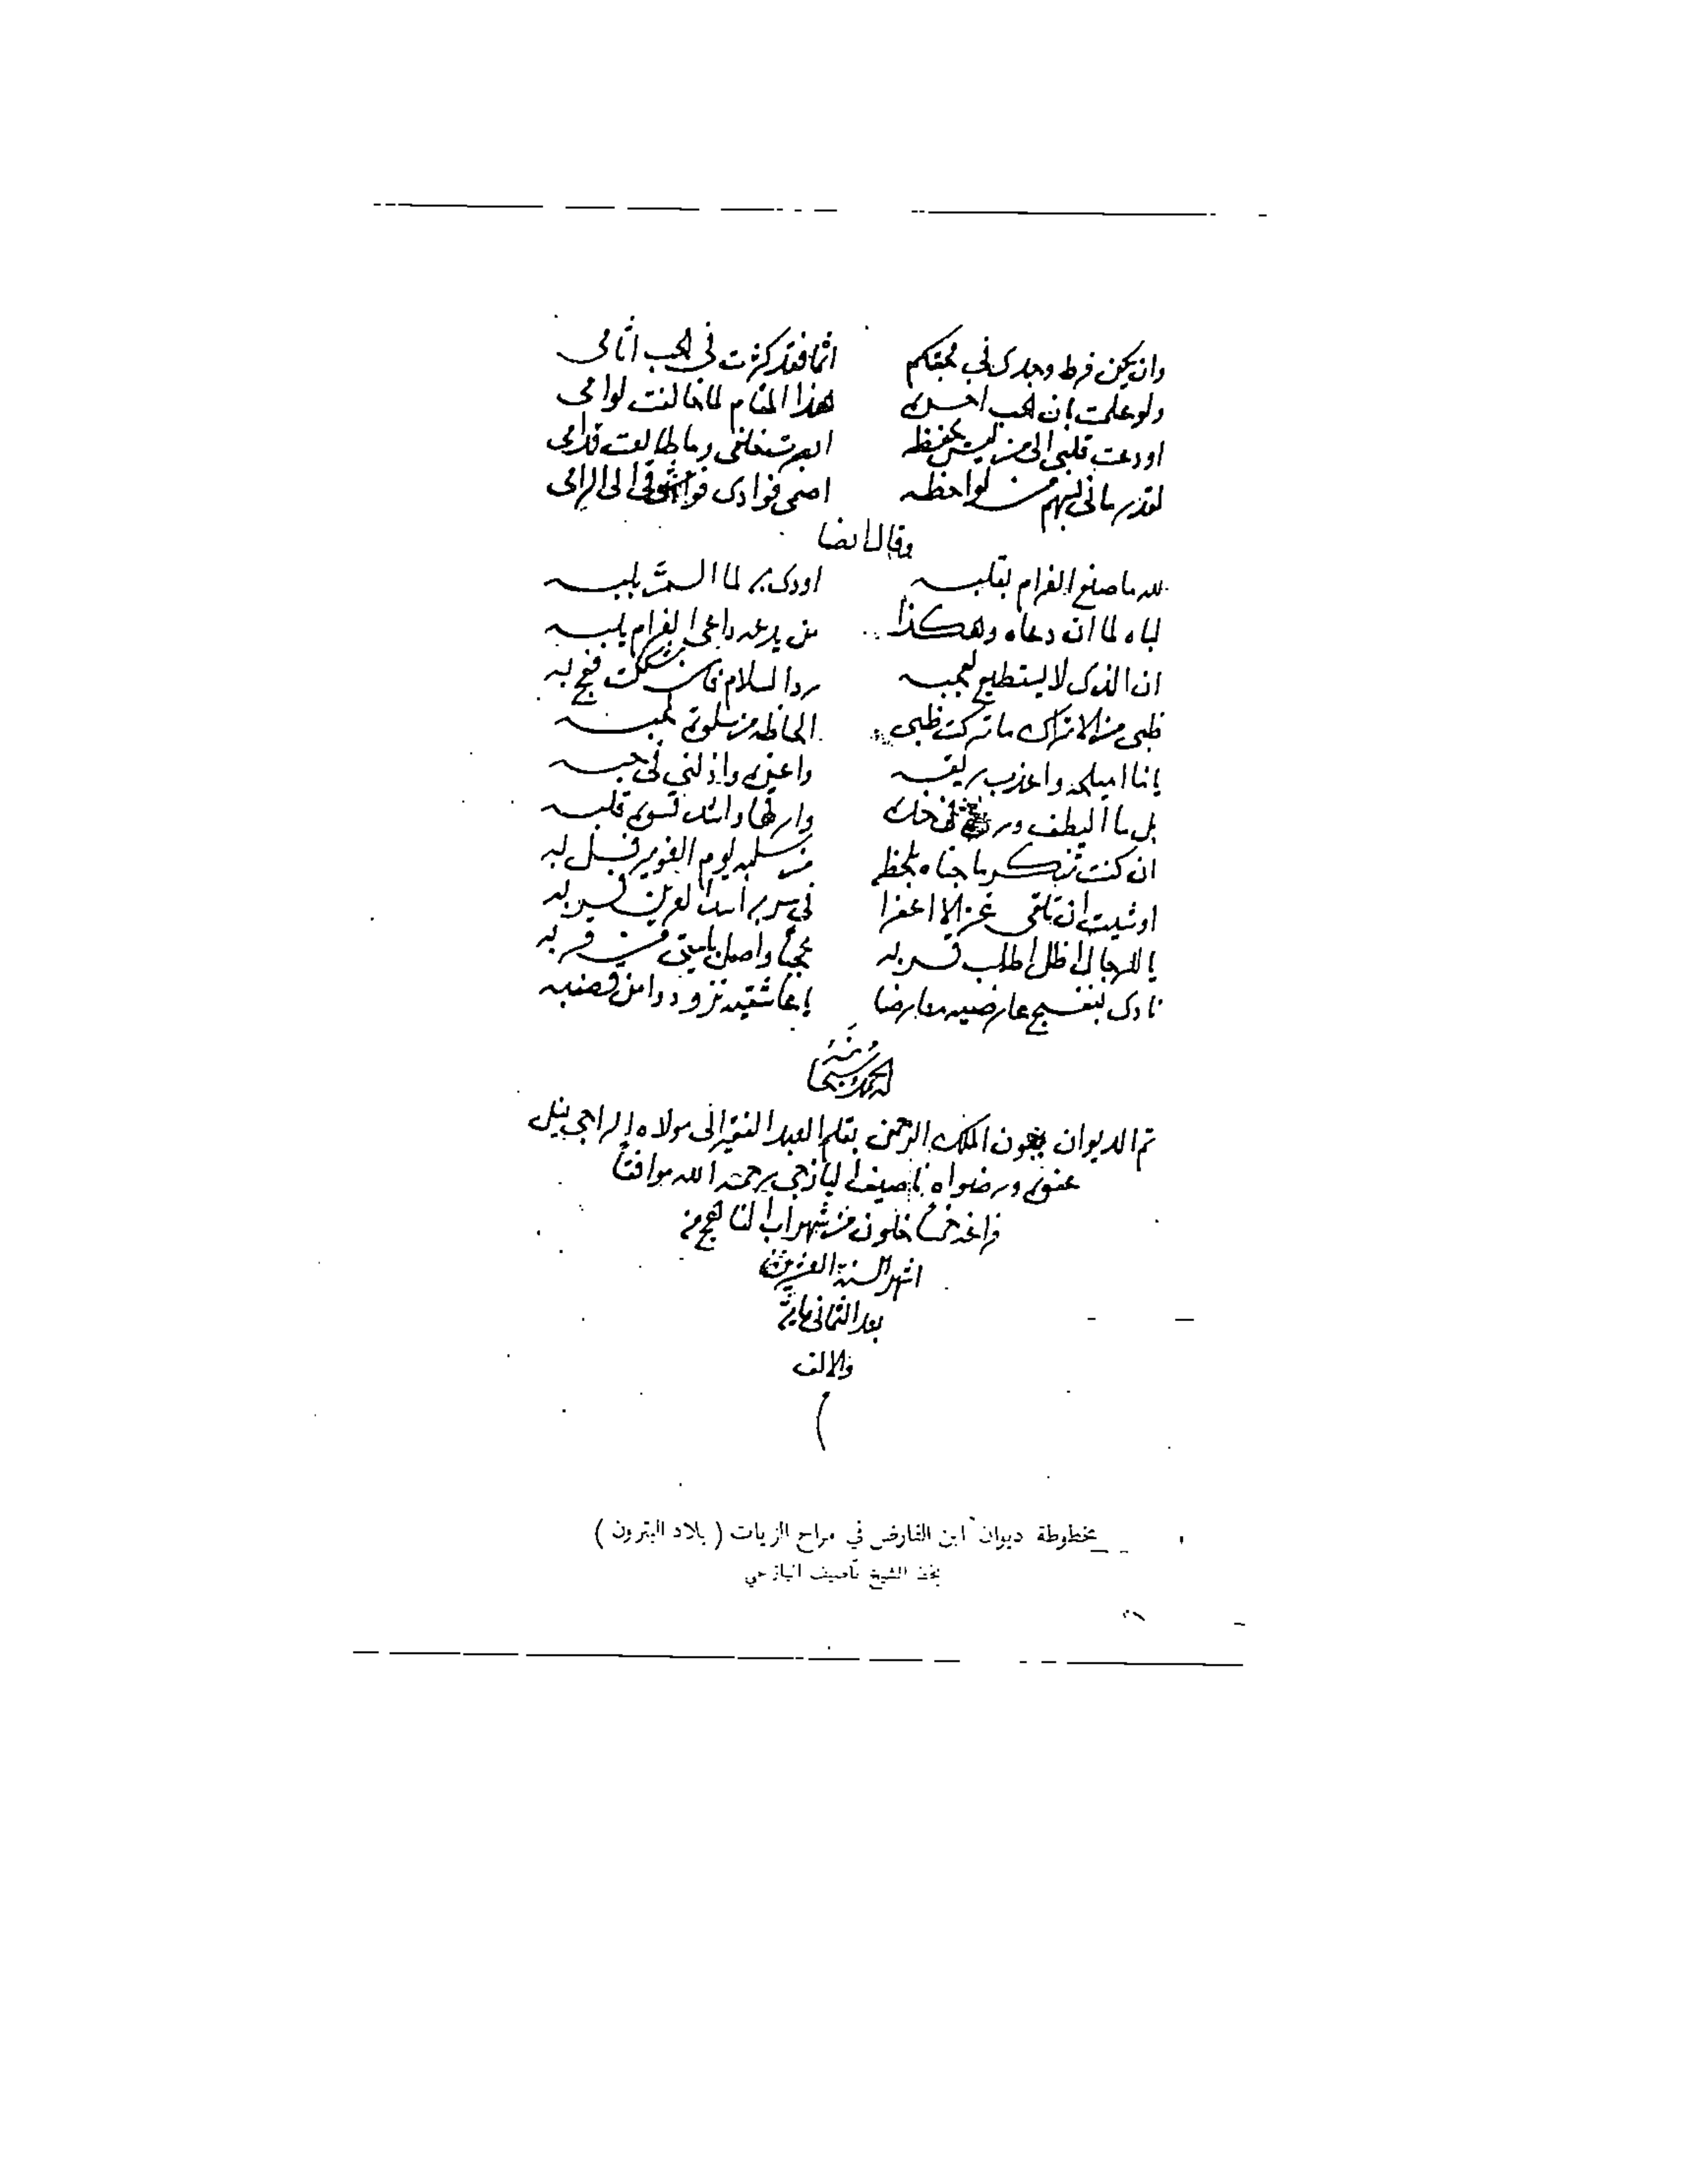 وان يكن فرط وجدى فى محبتكم اثما فقد كثرت فى الحب اثامى
ولو علمت بان الحب اخره هذا المقام لما خالفت لوامى
اودعت قلبى الى من ليس يحفظه ابصرت خلفى وما طالعت قدامى
لقد رمانى بسهم من لواحظه اصمى فوادى فواشوقى الى الرامى
وقال ايضا
لله ما صنع الغرام بقلبه اودى به لما الـمَّ بلبه
لباه لما ان دعاه وهكذا من يدعه داعى الغرام يلبه
ان الذى لا يستطيع لعجبه رد السلام فان شككت فعج به
ظبى من الاتراك ما تركت ظبى الحاظه من سلوة لمحبه
يا ما اميلحه واعذب ريقه واعزه واذلنى فى حبه
بل ما اليطف ورد فى خده وارقها واشد قسوة قلبه
ان كنت تنكر ما جناه بلحظه من سلبه يوم الغوير فسل به
او شيت ان تلقى غزالا اعفرا فى سربه اسد العرين فسر به
يا للرجال اظل اطلب قربه عجبا واصل بليتى من قربه
نادى بنفسج عارضيه معارضا يا عاشقيه تزودوا من قضبه
تم الديوان بعون الملك الرحمن بقلم العبد الفقير الى مولاه الراجى نيل
عفوه ورضواه ناصيف اليازجى رحمه الله موافقا
فراغه خلون من شهر اب الناهج من
اشهر السنة العزيزة
بعد الثمانى ماية
والالف
مخطوطة ديوان ابن الفارض في مراح الزيات ( بلاد البترون )
بخط الشيخ ناصيف اليازجي